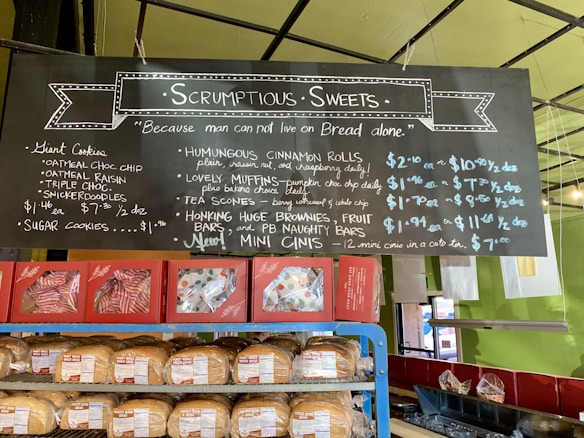 · SCRUMPTIOUS · SWEETS ·
"Because man can not live on Bread alone."
· Giant Cookies
· OATMEAL CHOC CHIP
· OATMEAL RAISIN
· TRIPLE CHOC.
· SNICKERDOODLES
$1.46 ea $7.30 1/2 doz
· SUGAR COOKIES.... $1.96
· HUMUNGOUS CINNAMON ROLLS $2.10 ea $10.50 1/2 doz
plain, raisin nut, and raspberry daily!
· LOVELY MUFFINS - pumpkin choc chip daily $1.46 ea $7.30 1/2 doz
plus bakers choice daily
· TEA SCONES - berry white chip $1.70 ea $8.50 1/2 doz
· HONKING HUGE BROWNIES, FRUIT $1.94 ea 1/2 doz
BARS, and PB NAUGHTY BARS
· New! MINI CINIS - 12 mini cinis in a cute tin. $7.00